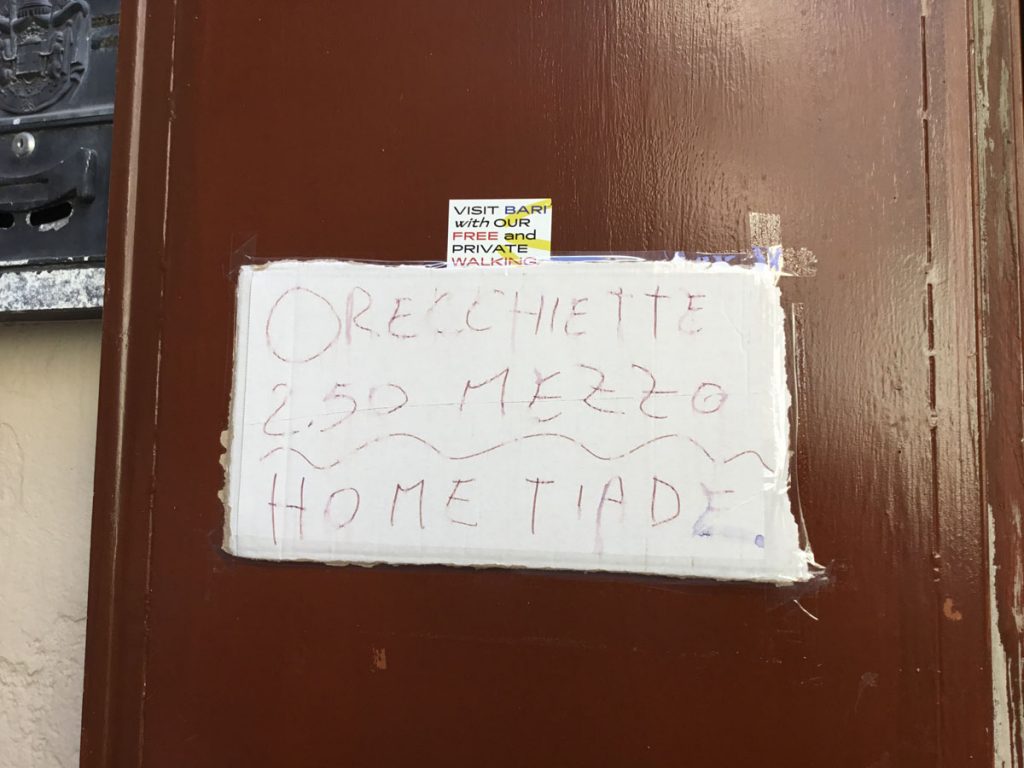 VISIT BARI
with OUR
FREE and
PRIVATE
WALKING
ORECCHIETTE
2.50 MEZZO
HOME TIADE.